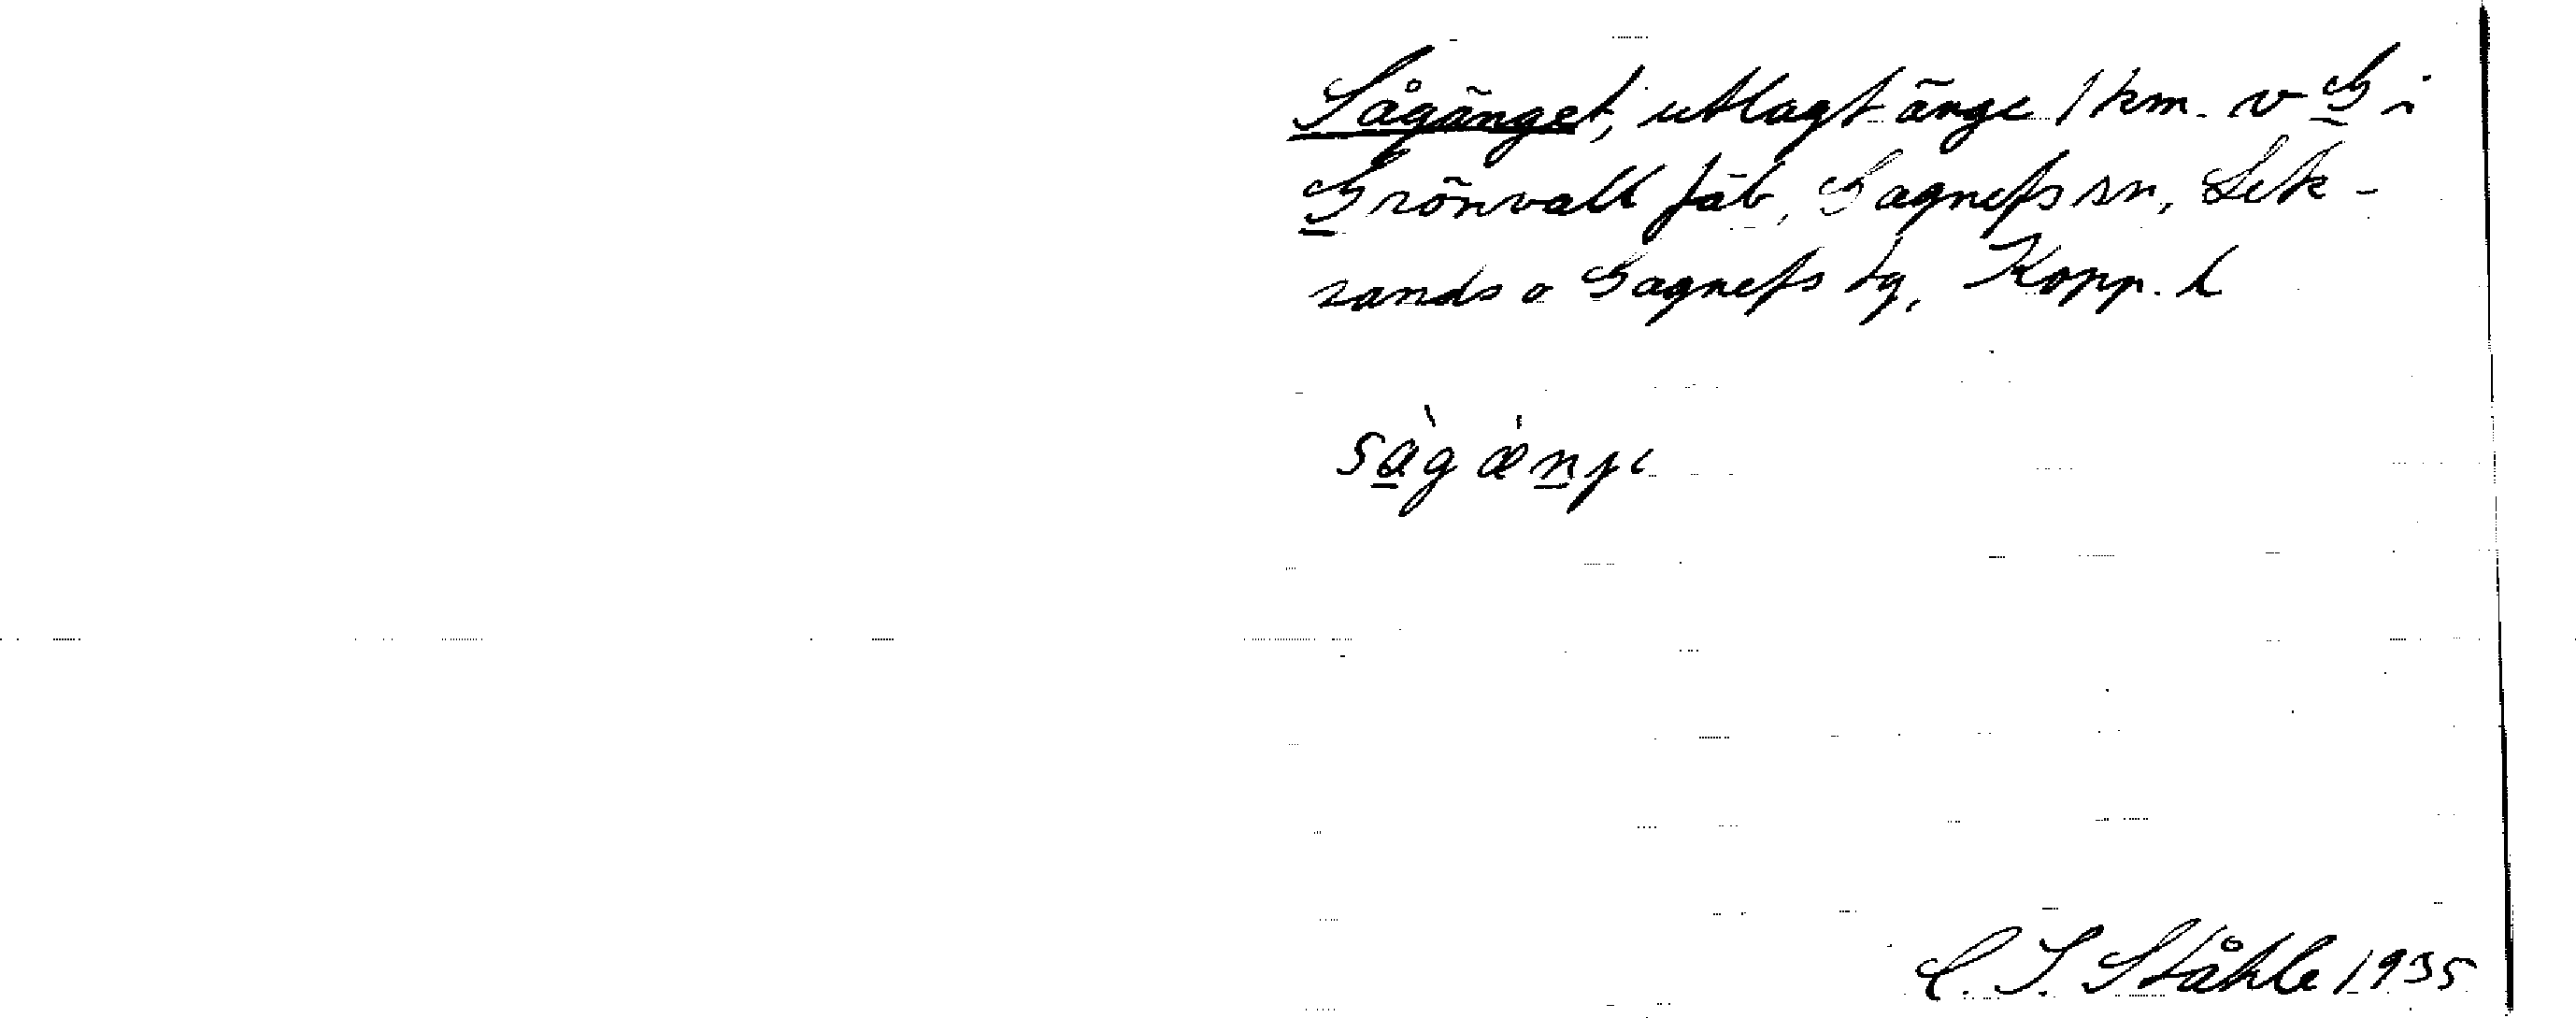 Sågänget, utlagt änge 1 km. v G i
Grönvall fäb, Gagnefs sn, Lek-
sands o Gagnefs tg, Kopp. l
sàg ænȷe
C. I. Ståhle 1935